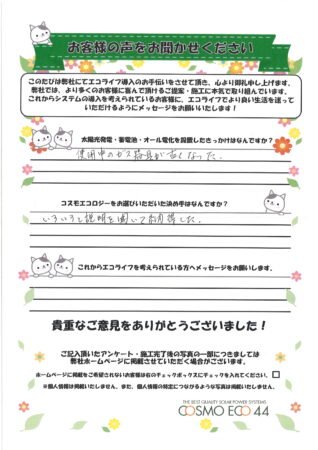 お客様の声をお聞かせください
このたびは弊社にてエコライフ導入のお手伝いをさせて頂き、心より御礼申し上げます。
弊社では、より多くのお客様に喜んで頂けるご提案・施工に本気で取り組んでいます。
これからシステムの導入を考えられているお客様に、エコライフでより良い生活を送って
いただけるようにメッセージをお願いいたします！
太陽光発電・蓄電池・オール電化を設置したきっかけはなんですか？
使用中のガス器具が古くなった。
コスモエコロジーをお選びいただいた決め手はなんですか？
いろいろと説明を聞いて納得した。
これからエコライフを考えられている方へメッセージをお願いします。
貴重なご意見をありがとうございました！
ご記入頂いたアンケート・施工完了後の写真の一部につきましては
弊社ホームページに掲載させていただく場合がございます。
ホームページに掲載をご希望されないお客様は右のチェックボックスにチェックを入れてください。
※個人情報は掲載いたしません。また、個人情報の特定につながるような写真は掲載いたしません。
THE BEST QUALITY SOLAR POWER SYSTEMS
COSMO ECO 44